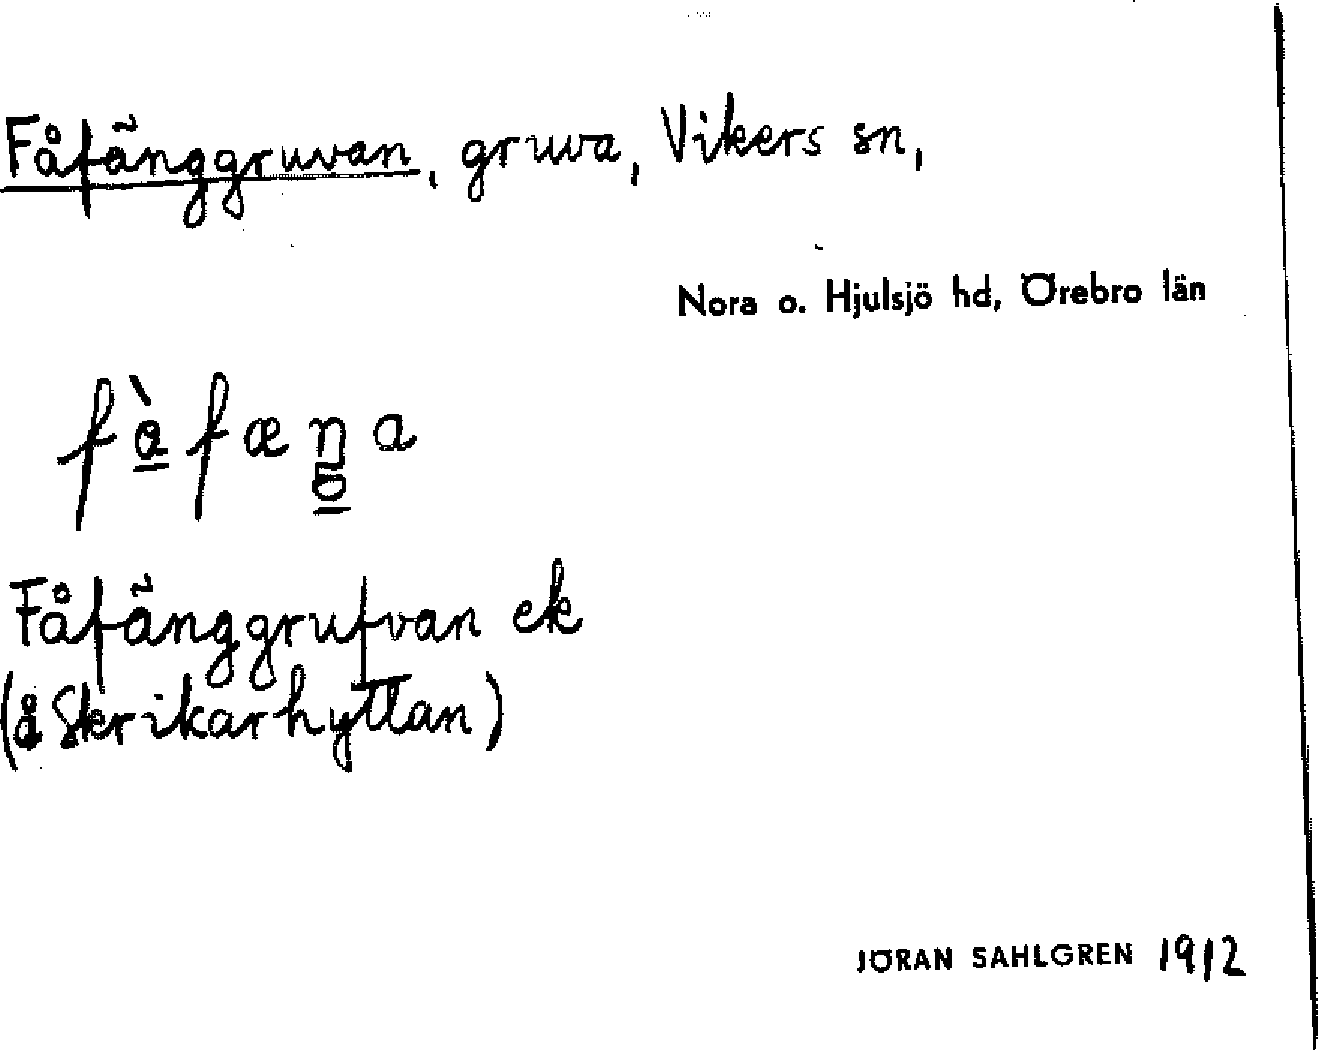 Fåfänggruvan, gruva, Vikers sn,
Nora o. Hjulsjö hd, Örebro län
fàfæŋa
Fåfänggrufvan ek
(å Skrikarhyttan)
JÖRAN SAHLGREN 1912